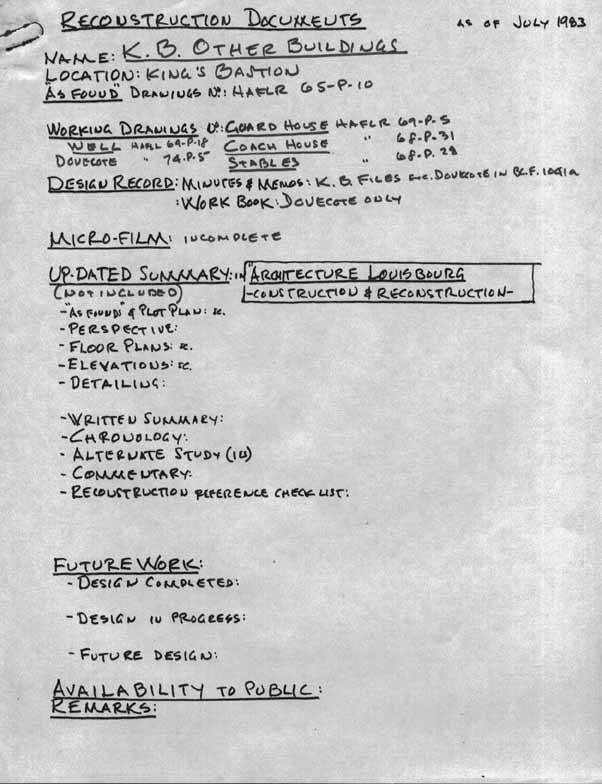 RECONSTRUCTION DOCUMENTS AS OF JULY 1983
NAME: K.B. OTHER BUILDINGS
LOCATION: KING'S BASTION
"AS FOUND" DRAWINGS No: HAFLR 65-P-10
WORKING DRAWINGS No: GUARD HOUSE HAFLR 69-P-5
WELL HAFLR 69-P-18 COACH HOUSE " 68-P-31
DOVECOTE " 74-P-5 STABLES " 68-P-28
DESIGN RECORD: MINUTES & MEMOS: K.B. FILES etc. DOVECOTE IN
: WORK BOOK: DOVECOTE ONLY
MICRO-FILM: INCOMPLETE
UP-DATED SUMMARY: in "ARCHITECTURE LOUISBOURG
(NOT INCLUDED) -CONSTRUCTION & RECONSTRUCTION-
-"AS FOUND" & PLOT PLAN: &c.
- PERSPECTIVE:
- FLOOR PLANS: &c.
- ELEVATIONS: &c.
- DETAILING:
- WRITTEN SUMMARY:
- CHRONOLOGY:
- ALTERNATE STUDY
- COMMENTARY:
- RECONSTRUCTION REFERENCE CHECK LIST:
FUTURE WORK:
- DESIGN COMPLETED:
- DESIGN IN PROGRESS:
- FUTURE DESIGN:
AVAILABILITY TO PUBLIC:
REMARKS: